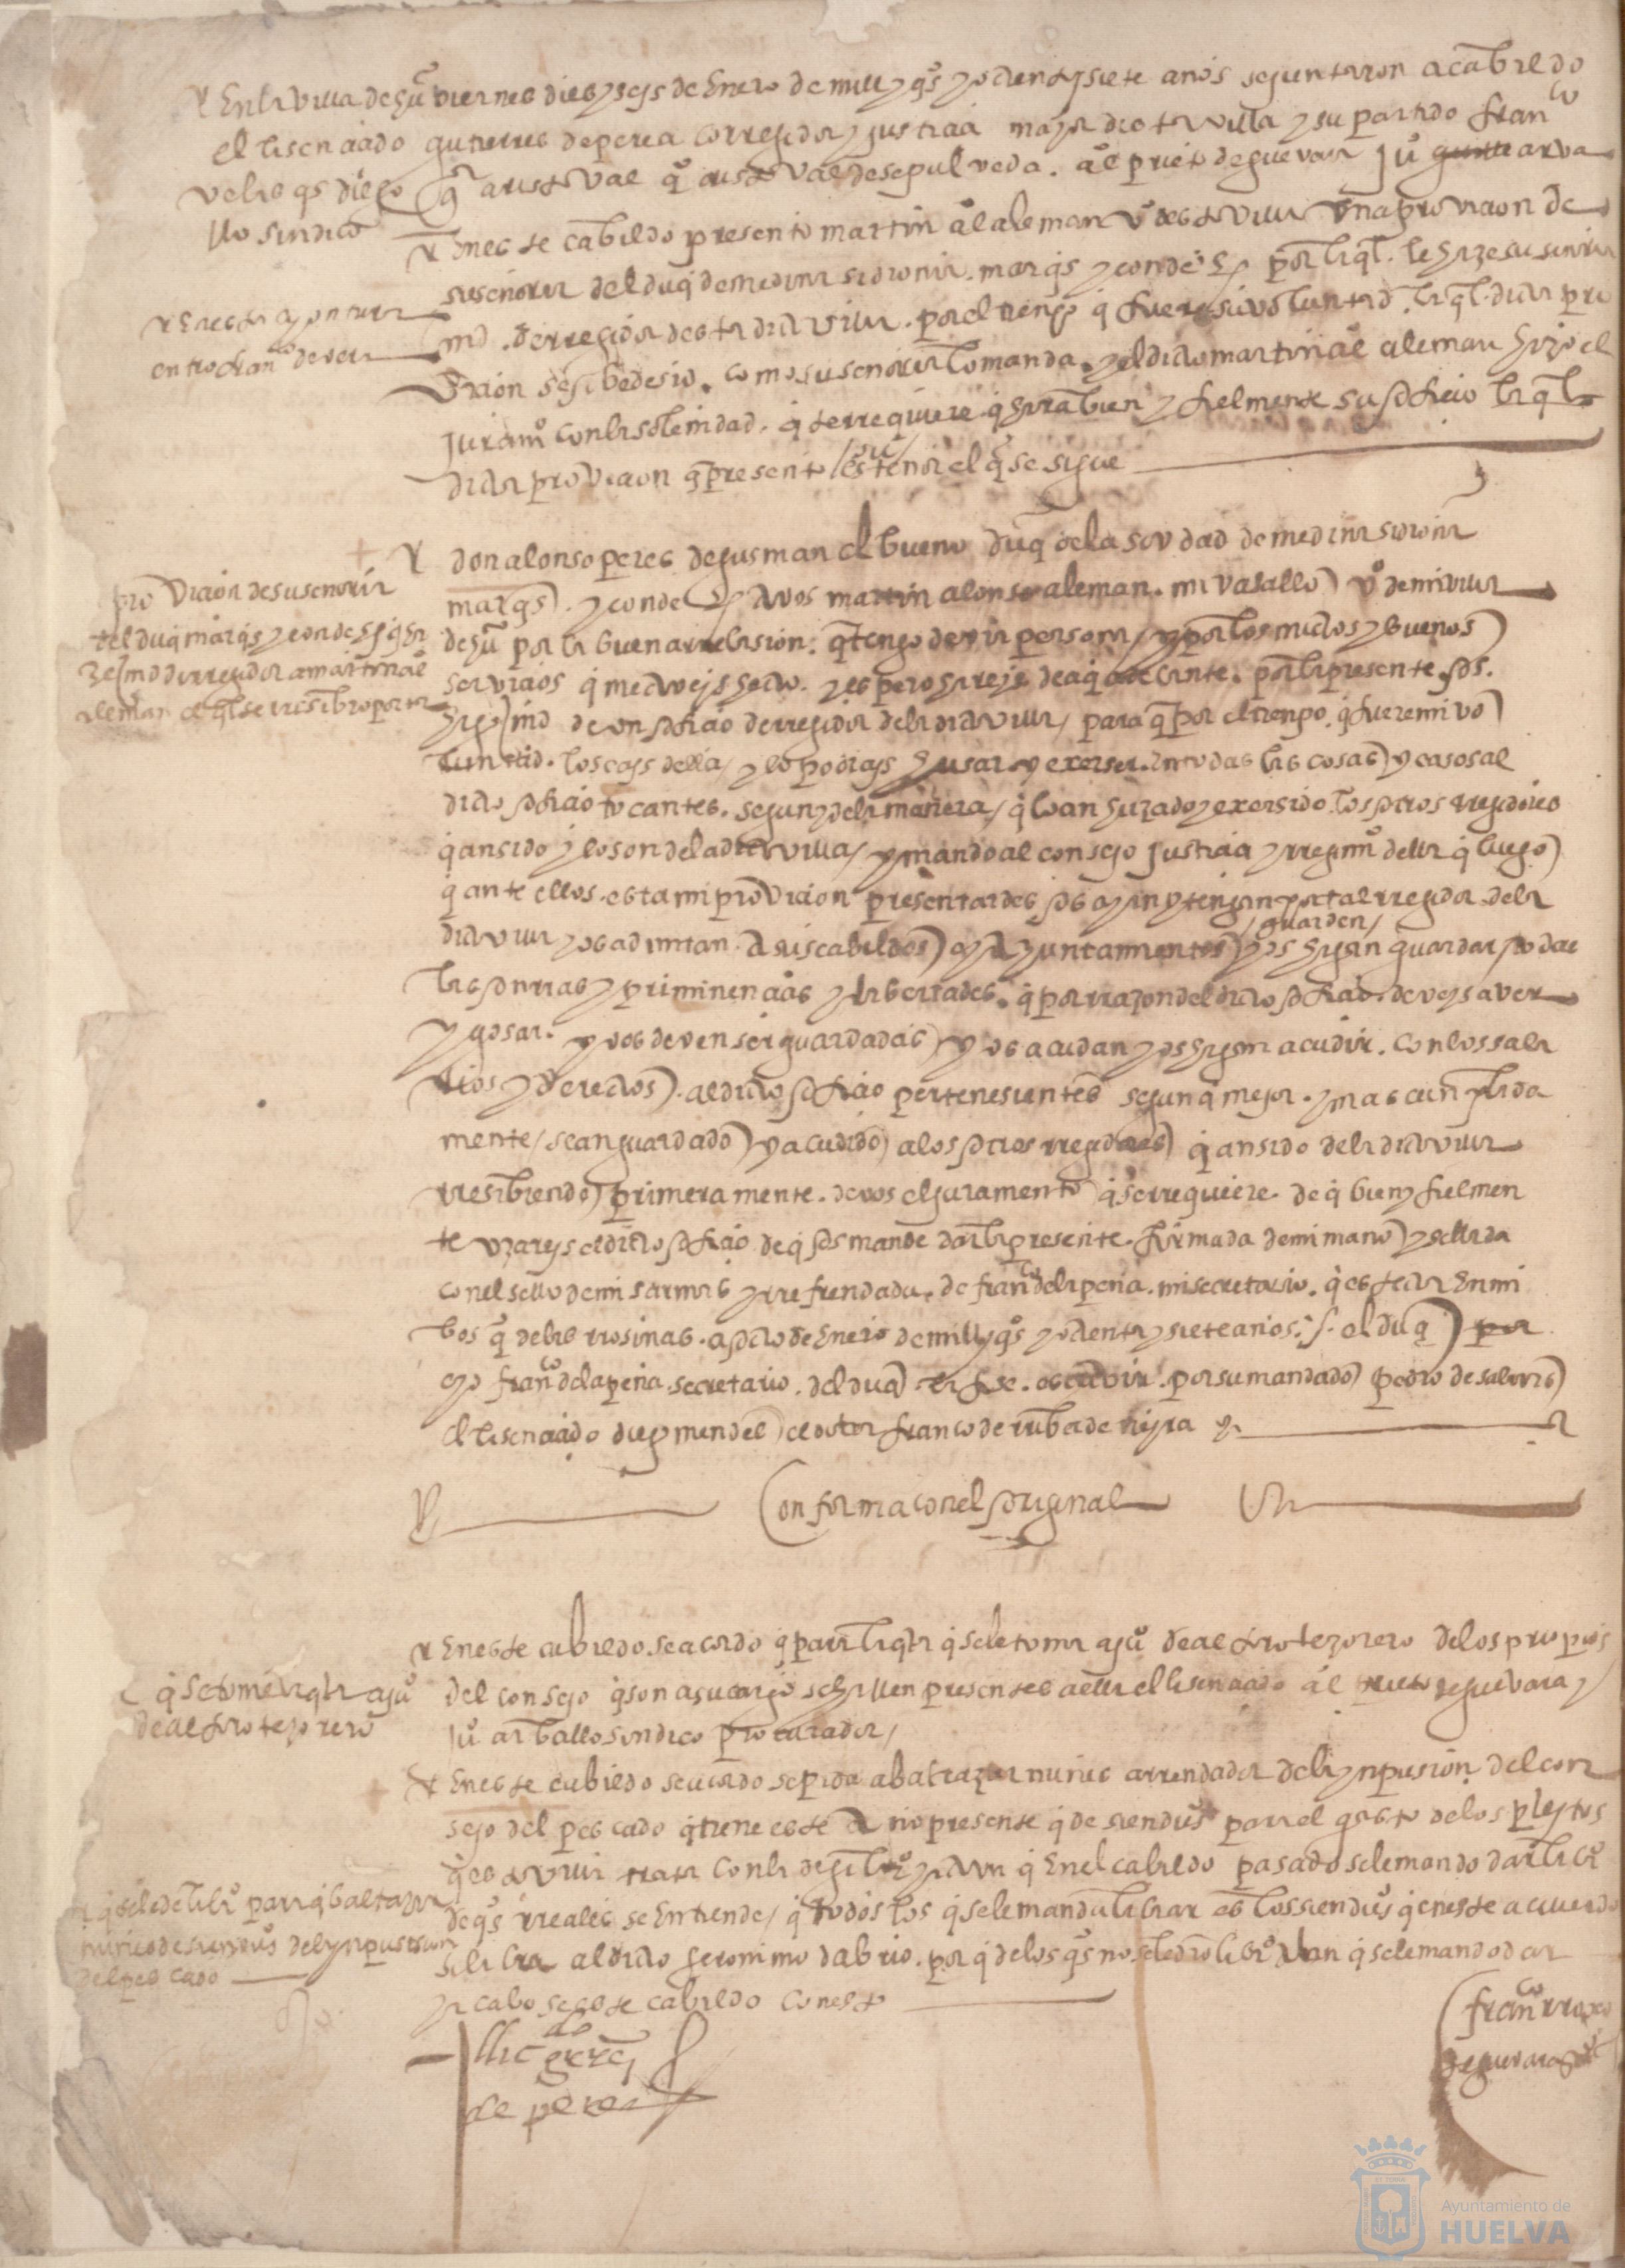 En la villa de gu͂ viernes dies y seys de Enero de mill y qͦs y ochenta y siete años se juntaron a cabildo
el lisenciado gutierres de perea corregidor y justicia mayor dicta villa y su partido franco
veles qs diego g͂ cristoval g͂ cristoval de sepulveda . al͂ prieto de guevara ju͂ arva
llo sindico
Y En este cabildo presento martin al͂ aleman vͦ desta villa una provicion de
su señoria del duq͂ de medina sidonia . marq͂s y conde Ex por la ql͂ . le hize su señoria
md . de rregidor desta dicha villa . por el tienpo q͂ fuere su voluntad . la ql͂ . dicha pro
vicion se rrecibe de sio . como su señoria lo manda . y el dicho martin al͂ aleman hizo el
juramͦ con la solenidad . q͂ se rrequiere . q͂ hara bien y fielmente su oficio la ql͂
dicha provicion q͂ presento es tenor el q͂ se sigue
Y En esta ayuntaron
entro franco de vera
Y don alonso peres de gusman el bueno duq͂ de la ciudad de medina sidonia
marq͂s . y conde Ex a vos martin alonso aleman . mi vasallo vͦ de mi villa
de gu͂ por la buena rrelasion . q͂ tengo de vra persona / y por los muchos y buenos
servicios q͂ me aveys hecho . y espero hareys de aq͂ adelante . por la presente . os .
hago md de un oficio de rregidor de la dicha villa / para q͂ por el tienpo . q͂ fuere mi vo
luntad . lo seays della / y lo podays husar y exerser . en todas las cosas y casos al
dicho oficio tocantes . segun y de la manera / q͂ lo an huzado y exersido . los otros rregidores
q͂ an sido y lo son de la dicha villa / y mando al consejo justicia y rregimͦ della q͂ luego
q͂ ante ellos . esta mi provicion presentardes os ayan y tengan por tal rregidor de la
dicha villa y os admitan . a sus cabildos y ayuntamientos y os guarden / hagan guardar todas
las onrras y priminencias y libertades . q͂ por rrazon del dicho oficio . deveys aver
y gosar . y vos deven ser guardadas y os acudan y os hagan acudir . con los sala
rios y derechos . al dicho oficio pertenesientes segun q͂ mejor . y mas cunplida
mente / se an guardado y acudido a los otros rregidores q͂ an sido de la dicha villa
rresibiendo primeramente . de vos el juramento q͂ se rrequiere . de q͂ bien y fielmen
te uzareys el dicho oficio de q͂ os mande dar la presente . firmada de mi mano y sellada
con el sello de mis armas y rrefrendada . de franco de la peña . mi secretario . q͂ es fecha En mi
bosq͂ de las rrosinas . a ocho de Enero de mill y qͦs y ochenta y siete años . el duq͂ por
yo franco de la peña . secretario . del duq͂ . la fize . escrevir . por su mandado pedro de
el lisenciado diego mendes el dotor franco de rribadeneyra
provicion de su señoria
del duq͂ marq͂s y conde Ex q͂ ha
ze md de rregidor a martin al͂
aleman el ql͂ se rrecibio por tal
Conforma con el original
Y En este cabildo se acordo q͂ para la qta q͂ se le toma a ju͂ de al faro tezorero de los propios
del consejo q͂ son a su cargo se hallen presentes a ella el lisenciado al͂ prieto de guevara y
ju͂ arballo sindico procurador /
q͂ se tome la qta a ju͂
de al faro tezorero
Y En este cabildo se acordo se pida a baltazar nunes arrendador de la ynpusision del con
sejo del pescado q͂ tiene este año presente q͂ de siendus para el gasto de los pleytos
q͂ esta villa trata con la de gibraleon y aun q͂ En el cabildo pasado se le mando dar libr͂
de q͂s rreales se entiende / q͂ todos los q͂ se le manda librar es los siendus q͂ en este acuerdo
se libra al dicho geronimo dabrio . por q͂ de los q͂s no se le dio libr͂ aun q͂ se le mando dar
y acabose este cabildo con esto
q͂ se le de libr͂ para q͂ baltazar
nunes de siendus de la ynpusision
del pescado
llicdo grrez
de perea
franco
de guevara
Ayuntamiento de
HUELVA